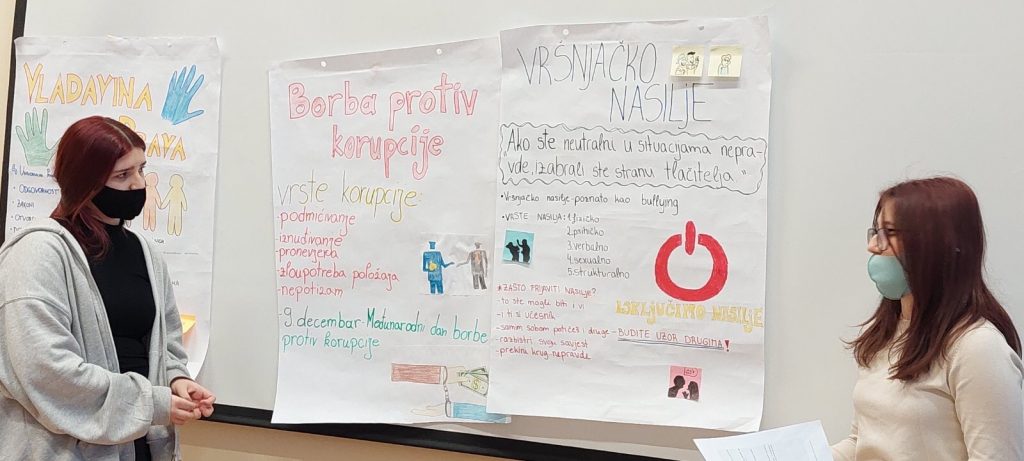 VLADAVINA
PRAVA
ODGOVORNOST
ZAKONI
Borba protiv
korupcije
vrste korupcije:
-podmićivanje
-iznuđivanje
-pronevjera
-zloupotreba položaja
-nepotizam
-9. decembar-Međunarodni dan borbe
protiv korupcije
VRŠNJAČKO
NASILJE
"Ako ste neutralni u situacijama nepra-
vde, izabrali ste stranu tlačitelja"
•Vršnjačko nasilje-poznato kao bullying
•VRSTE NASILJA: 1.fizičko
2.psihičko
3.verbalno
4.sexualno
5.strukturalno
*ZAŠTO PRIJAVITI NASILJE?
-to ste mogli biti i vi
-i ti si učesnik
-samim sobom potičeš i druge - BUDITE UZOR DRUGIMA!
-razbistri svoju savjest
-prekini krug nepravde
ISKLJUČIMO NASILJE